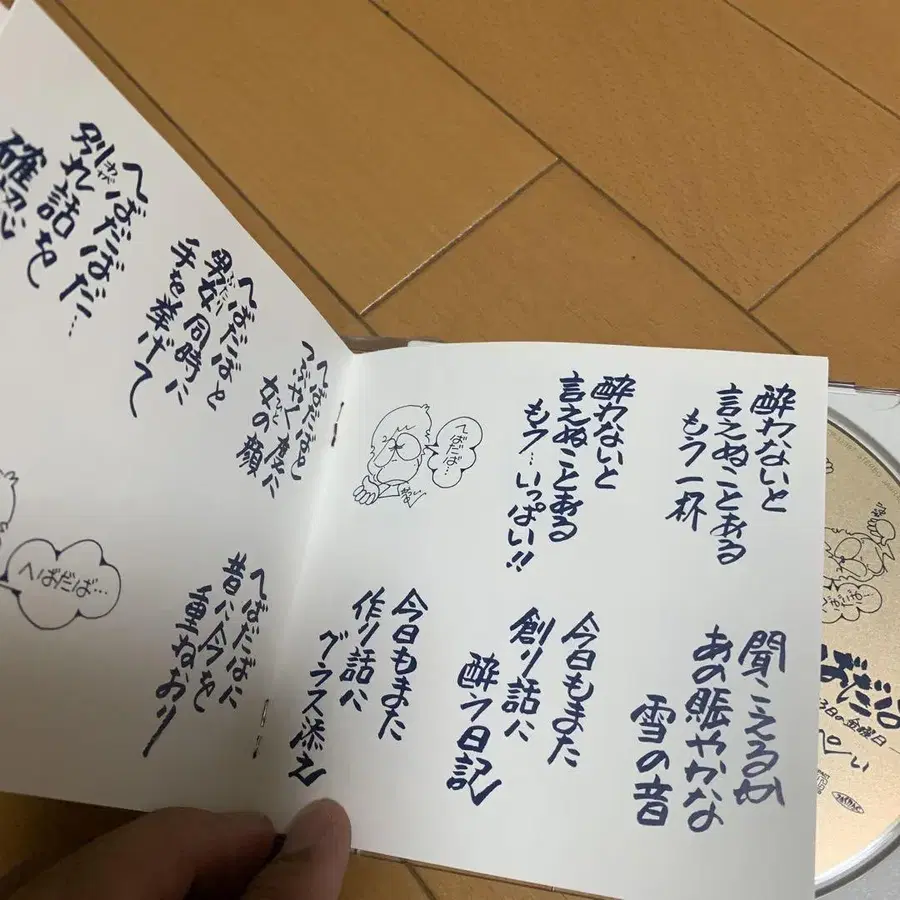 酔わないと
言えぬことある
もう一杯
酔わないと
言えぬことある
もう…いっぱい!!
へばだば…
聞こえるか
あの賑やかな
雪の音
今日もまた
創り話に
酔う日記
今日もまた
作り話に
グラス添え
へばだばと
つぶやく度に
女の顔
へばだばと
男女同時に
手を挙げて
へばだばだ…
別れ話を
確認
へばだばに
昔に今を
重ねおり
へばだば…
ばだば
3日の金曜日